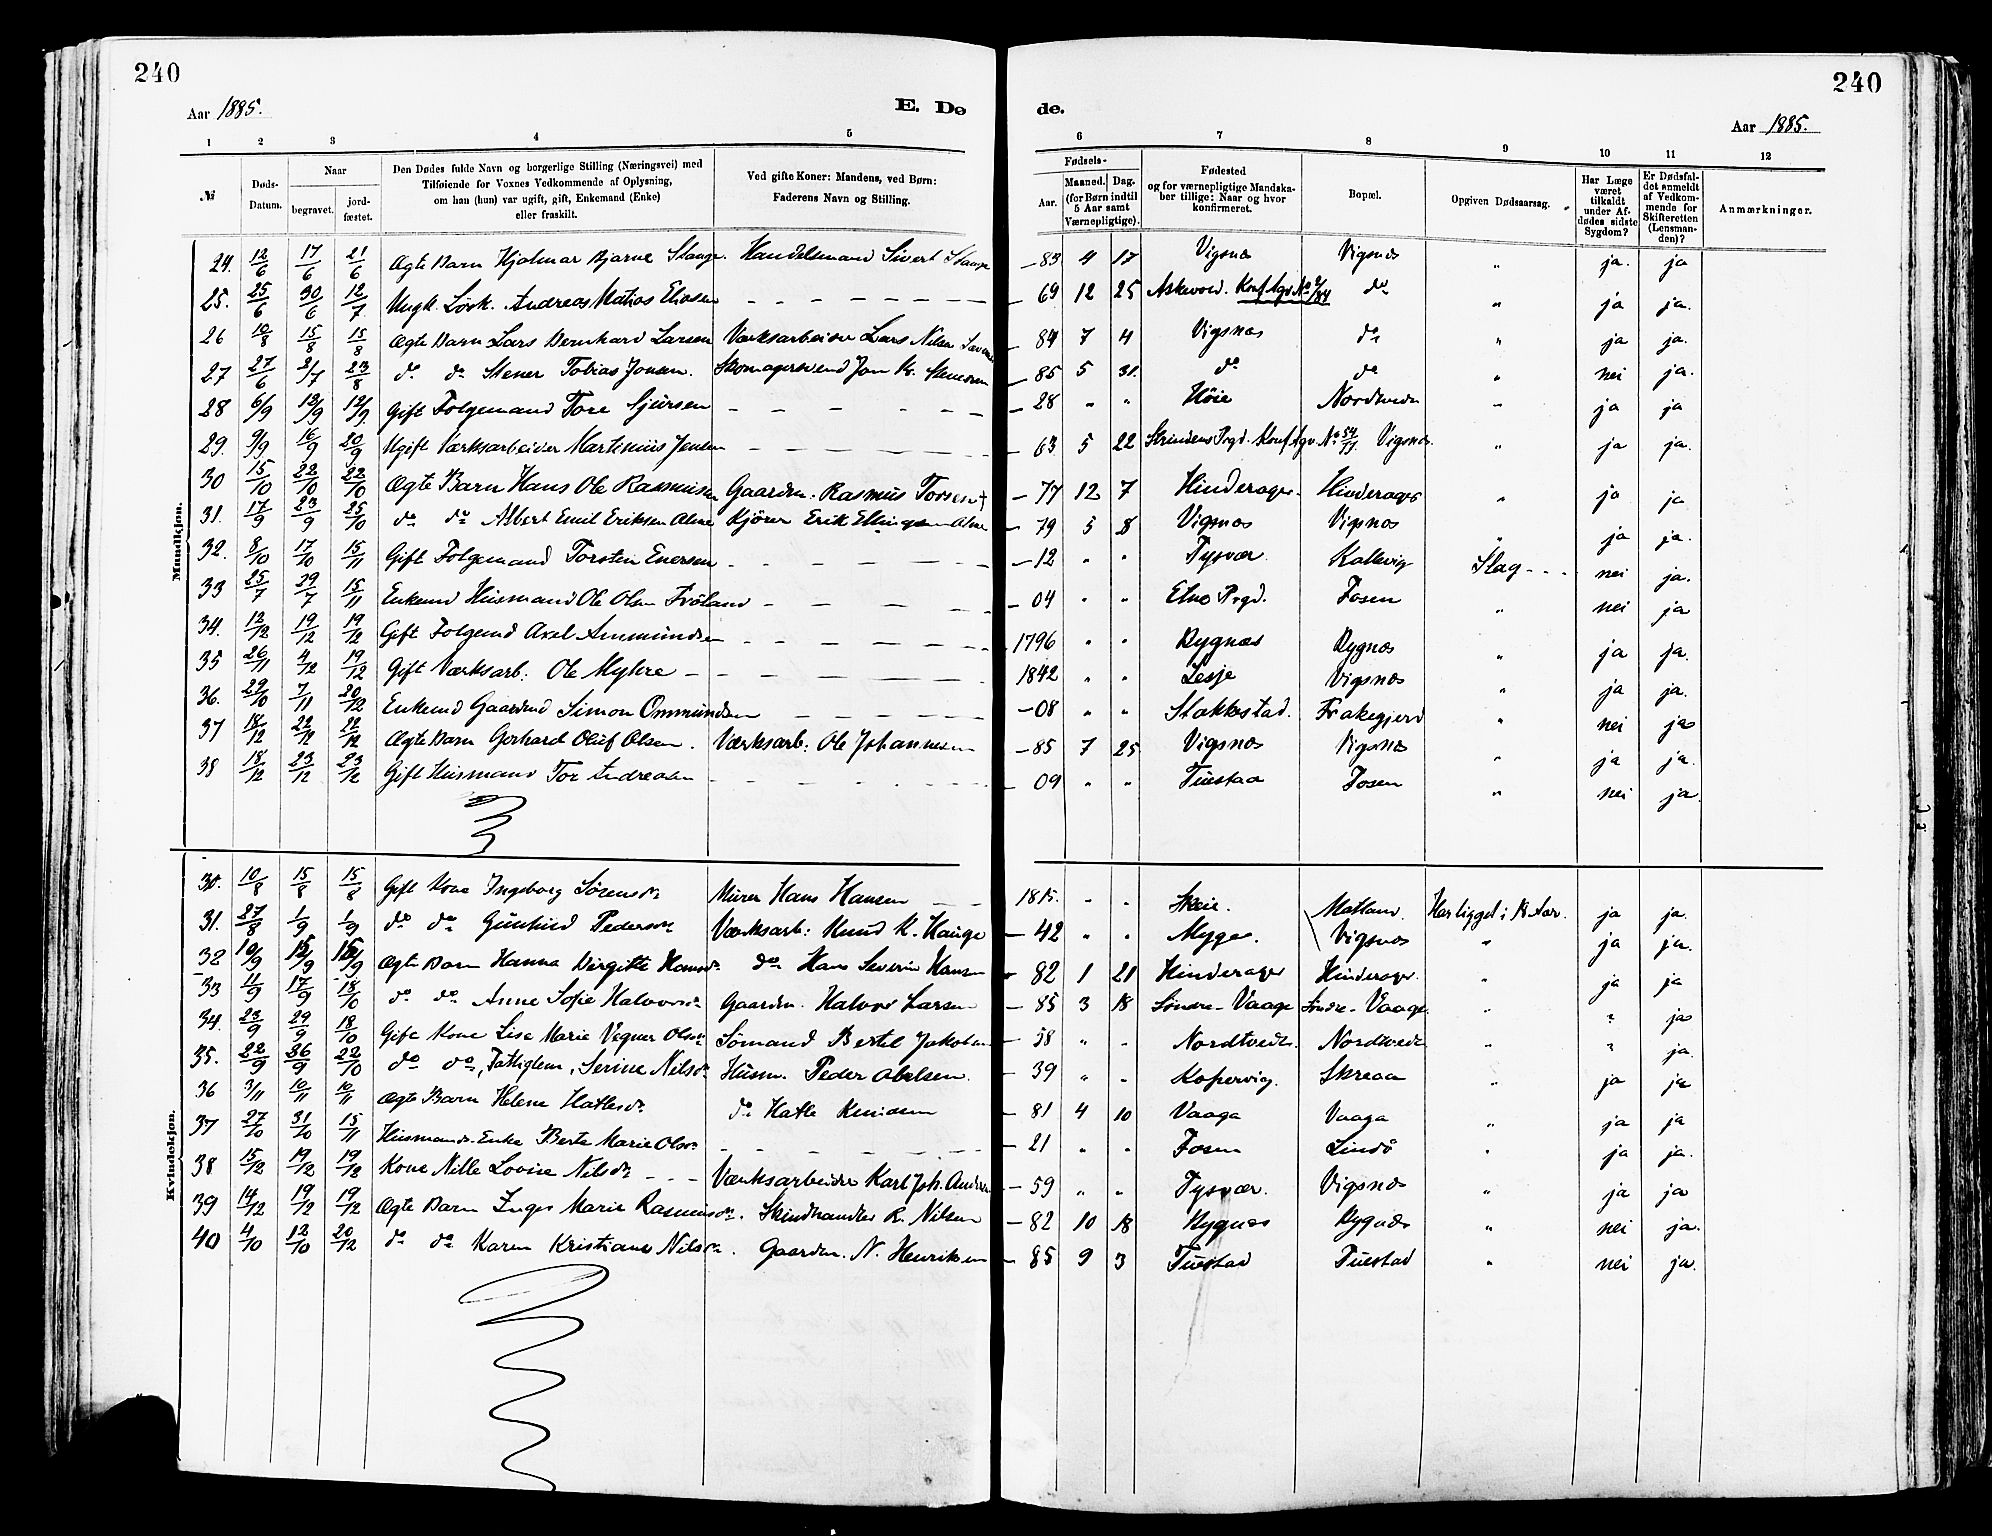 240
240
Aar 1885.
E. Dø
de.
Aar 1885.
1 2 3 4 5 6 7 8 9 10 11 12
№
Døds-Datum.
Naar
begravet.
jord-fæstet.
Den Dødes fulde Navn og borgerlige Stilling (Næringsvei) med
Tilføiende for Voxnes Vedkommende af Oplysning,
om han (hun) var ugift, gift, Enkemand (Enke)
eller fraskilt.
Ved gifte Koner: Mandens, ved Børn:
Faderens Navn og Stilling.
Fødsels-
Aar.
Maaned. Dag.
(for Børn indtil
5 Aar samt
Værnepligtige).
Fødested
og for værnepligtige Mandska-
ber tillige: Naar og hvor
konfirmeret.
Bopæl.
Opgiven Dødsaarsag.
Har Læge
været
tilkaldt
under Af-
dødes sidste
Sygdom?
Er Dødsfal-
det anmeldt
af Vedkom-
mende for
Skifteretten
(Lensman-
den)?
Anmærkninger.
Mandkjøn.
24. 12/6 17/6 21/6 Ægte Barn Hjalmar Bjarne Stange. Handelsmand Sivert Stange – 83 4 17 Vigsnæs Vigsnæs " ja. ja
25. 25/6 30/6 12/7 Ungk. Andreas Matias Eliasen – 69 12 25 Askevold. do " ja ja.
26 10/8 15/8 15/8 Ægte Barn Lars Bernhard Larsen Værksarbeider Lars Nilsen – 84 7 4 Vigsnæs do " ja ja.
27 27/6 2/7 23/8 do do Stener Tobias Jonsen. Skomagersvend Jon K. Stenersen – 85 5 31. do do " nei ja.
28 6/9 12/9 12/9. Gift Folgemand Tore Sjursen – 28 " " Høie Nordtvedt " ja ja
29. 9/9 16/9 20/9 Ugift Værksarbeider Martinius Jensen – 63 5 22 Vigsnæs. " ja ja.
30 15/10 22/10 22/10 Ægte Barn Hans Ole Rasmusen Gaardm. Rasmus Torsen – 77 12 7 Hinderager. Hinderager " ja ja
31. 17/9 23/9 25/10 do do Albert Emil Eriksen Alne Kjører Erik Ellingsen Alne – 79 5 8 Vigsnæs Vigsnæs " ja ja.
32. 8/10 17/10 15/11 Gift Folgemand Torsten Enersen – 12 " " Tysvær. Kallevig Slag nei ja.
33 25/7 29/7 15/11 Enkemd Husmand Ole Olsen Fröland – 04 " " Etne Prgd. Fosen " nei ja
34. 12/12 19/12 19/12 Gift Folgemd Axel Ammundsen 1796 " " Rygnæs Rygnæs " ja ja.
35 26/11 4/12 19/12 Gift Værksarb: Ole Myhre 1842 " " Lesje Vigsnæs " ja ja.
36. 29/10 7/11 20/12 Enkemd Gaardmd Simon Ommundsen – 08 " " Stakkestad. Frakegjerd " nei ja
37 18/12 22/12 22/12 Ægte Barn Gerhard Oluf Olsen. Værksarb: Ole Johannesen – 85 7 25 Vigsnæs Vigsnæs " ja ja.
38 18/12 23/12 23/12 Gift Husmand Tor Andreasen – 09 " " Tuestad Fosen " nei ja.
Kvindekjøn.
30. 10/8 15/8 15/8 Gift Kone Ingeborg Sörensdr Murer Hans Hansen 1815. " " Skeie. Matland. Har ligget i 18 Aar. ja ja.
31. 27/8 1/9 1/9 do do Gunhild Pedersdr Værksarb: Knud K. Hauge – 42 " " Vigsnæs " ja ja.
32 10/9 15/9 15/9 Ægte Barn Hanna Birgitte Hansdr do Hans Severin Hansen 82 1 21 Hinderager Hinderager. " ja ja
33 11/9 17/9 18/10 do do Anne Sofie Halvorsdr Gaardm. Halvor Larsen – 85 3 18 Söndre-Vaage Söndre-Vaage. " ? ja
34. 23/9 29/9 18/10 Gift Kone Lise Marie Vegner Olsdr Sömand Bertel Jakobsen – 58 " " Nordtvedt. Nordtvedt " ? ja.
35. 22/9 26/9 22/10 do do, Fattiglem, Serine Nilsdr Husm. Peder Abelsen. – 39 " " Kopervig. Skreaa " ja ja
36 3/11 10/11 10/11 Ægte Barn Helene Hatlesdr do Hatle Knudsen – 81 4 10 Vaaga Vaaga " ja ja
37 27/10 31/10 15/11 Husmands Enke Berte Marie Olsdr – 21 " " Fosen Lindö " ja ja.
38 15/12 19/12 19/12 Kone Nille Lovise Nilsdr Værksarbeider Karl Joh. Andersen – 59 " " Tysvær. Vigsnæs " ja ja
39 14/12 19/12 19/12 Ægte Barn Inger Marie Rasmusdr. Skindhandler R. Nilsen – 82 10 18 Rygnæs Rygnæs " nei ja.
40 4/10 12/10 20/12 do do Karen Kristiane Nilsdr. Gaardm. N. Henriksen – 85 9 3 Tuestad Tuestad " nei ja.